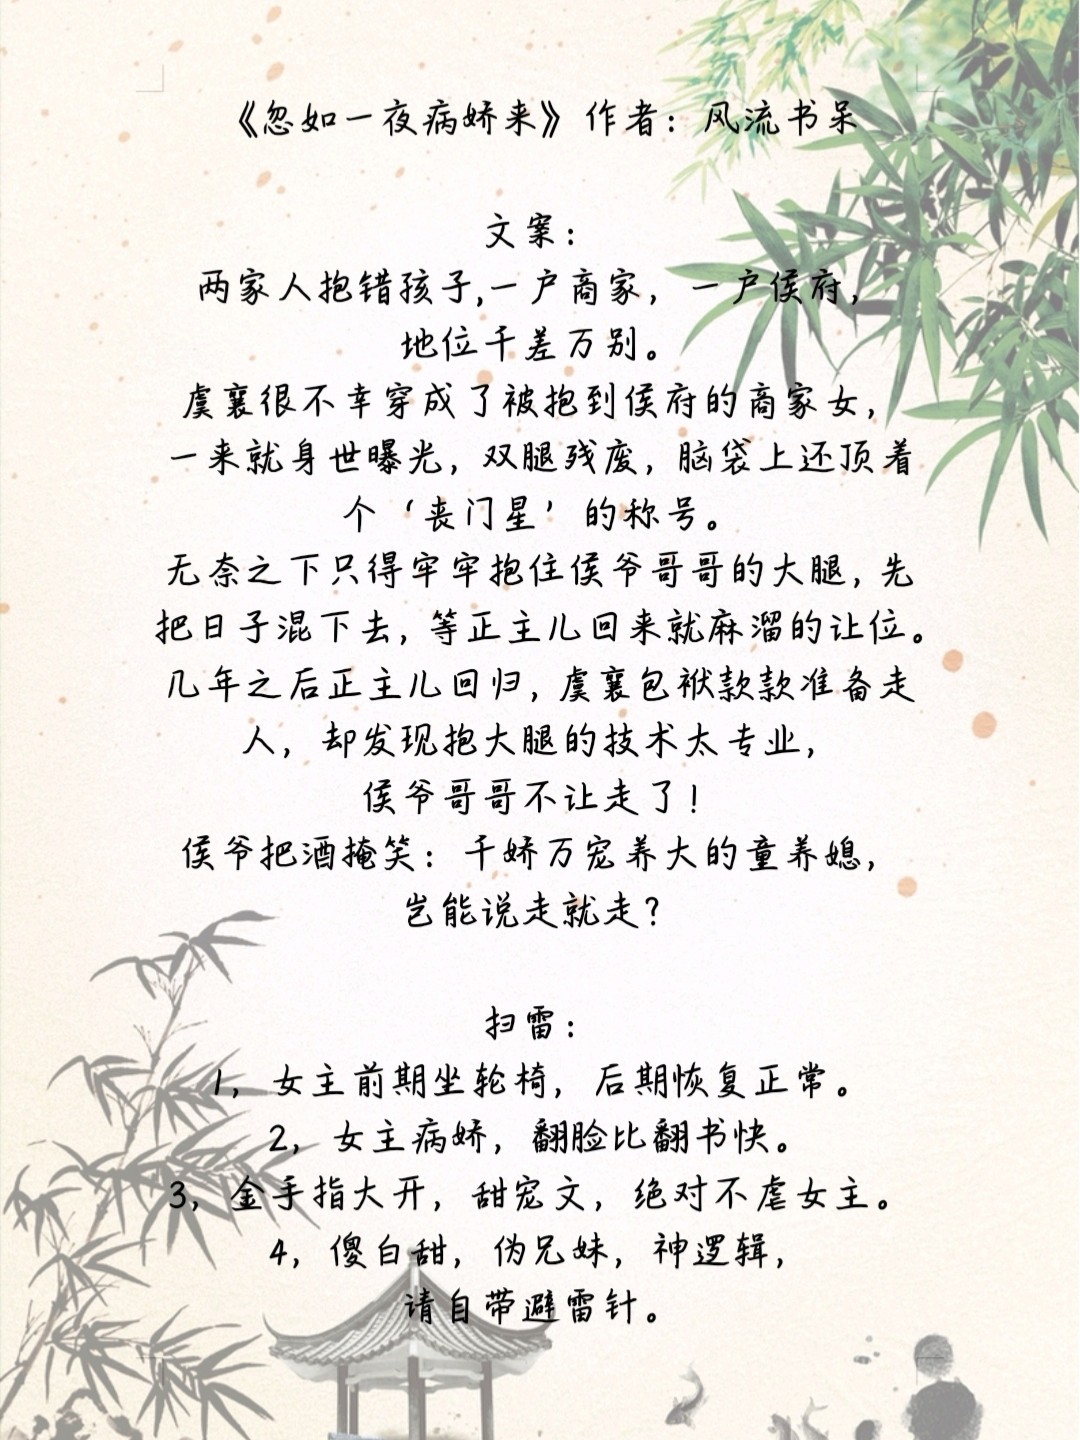 《忽如一夜病娇来》作者：风流书呆
文案：
两家人抱错孩子,一户商家，一户侯府，
地位千差万别。
虞襄很不幸穿成了被抱到侯府的商家女，
一来就身世曝光，双腿残废，脑袋上还顶着
个‘丧门星’的称号。
无奈之下只得牢牢抱住侯爷哥哥的大腿，先
把日子混下去，等正主儿回来就麻溜的让位。
几年之后正主儿回归，虞襄包袱款款准备走
人，却发现抱大腿的技术太专业，
侯爷哥哥不让走了！
侯爷把酒掩笑：千娇万宠养大的童养媳，
岂能说走就走？
扫雷：
1，女主前期坐轮椅，后期恢复正常。
2，女主病娇，翻脸比翻书快。
3，金手指大开，甜宠文，绝对不虐女主。
4，傻白甜，伪兄妹，神逻辑，
请自带避雷针。